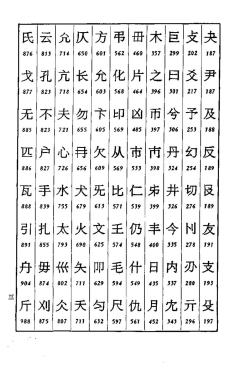 氏 云 方 弔 毌 木 巨 攴 夬
876 813 714 650 601 562 460 357 299 202 187
戈 孔 亢 长 化 片 之 曰 爻 尹
877 823 718 658 603 568 464 396 301 217 187
无 不 夫 勿 卞 卬 凶 币 兮 予 及
885 823 721 655 605 569 485 397 306 253 188
匹 户 心 毋 欠 从 市 内 丹 幻 反
886 827 726 656 609 569 533 398 324 254 189
瓦 手 水 犬 旡 比 仁 井 切
888 839 755 679 613 571 539 399 326 276 189
引 扎 太 火 文 壬 仍 丰 今 刌 友
893 855 793 698 625 574 548 400 335 278 191
毋 夭 卬 毛 什 日 内 办 支
904 874 802 711 629 594 548 435 335 282 193
斤 刈 仌 天 匀 尺 仇 月 冘 亓 殳
988 875 807 711 632 597 561 452 343 296 197